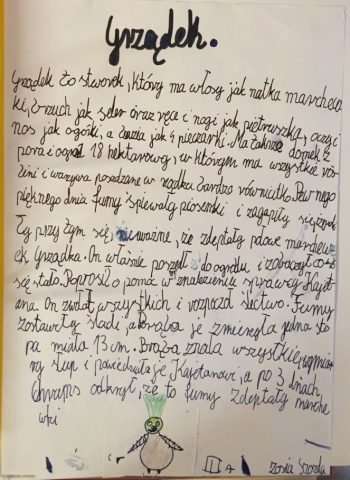 Grządek.
Grządek to stworek, który ma włosy jak natka marchew
ki, brzuch jak seler oraz ręce i nogi jak pietruszka, oczy i
nos jak ogórki, a buzia jak pieczarki. Ma także domek z
pora i ogród 18 hektarowy, w którym ma wszystkie roś
lini i warzywa posadzane w rządku bardzo równiutko. Pewnego
pięknego dnia fumy śpiewały piosenki i zagapiły się
przy tym się, nieważne, że zdeptały marchew
ek Grządka. On właśnie poszedł do ogrodu i zobaczył co
się stało. Poprosił o pomoc w znalezieniu sprawcy Kajet
ana. On zwołał wszystkich i rozpoczął śledztwo. Fumy
zostawiły ślady, a Brąba je zmierzyła jedna sto
pa miała 13 cm. Brąba znała wszystkie wymia
ry stup i powiedziała je Kajetanowi, a po 3 dniach
odkrył, że to fumy zdeptały marche
wki
Zosia